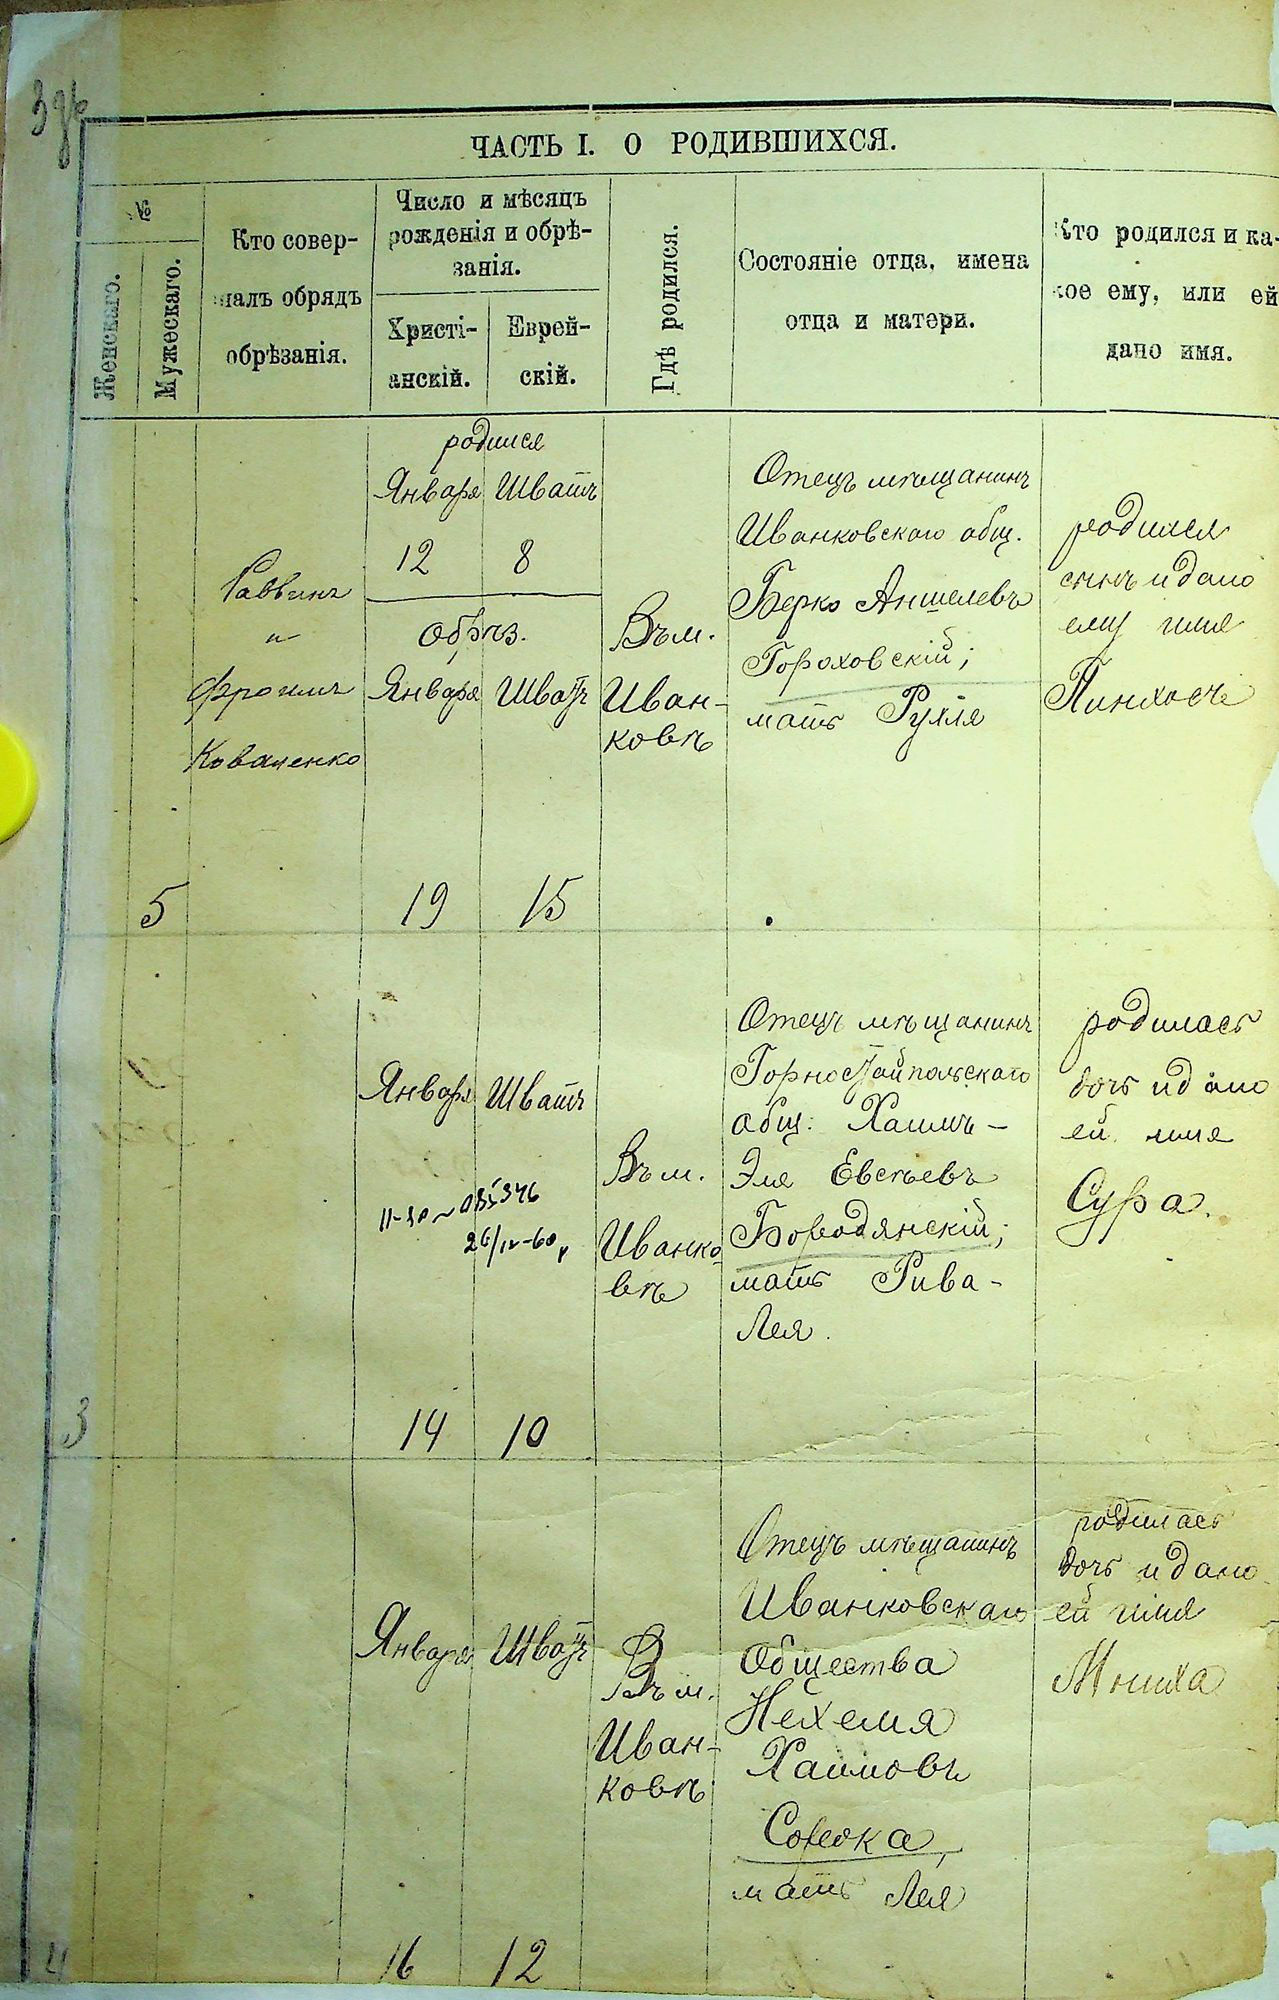 ЧАСТЬ I. О РОДИВШИХСЯ.
№
Женскаго.
Мужескаго.
Кто совер-
шалъ обрядъ
обрѣзанія.
Число и мѣсяцъ
рожденія и обрѣ-
занія.
Христі-
анскій.
Еврей-
скій.
Гдѣ родился.
Состояніе отца, имена
отца и матери.
Кто родился и ка-
кое ему, или ей
дано имя.
5
Раввинъ
"
Фроимъ
Коваленко
родился
Января Шватъ
12 8
Обрѣз.
Января Шватъ
19 15
Въ м.
Иван-
ковѣ
Отецъ мѣщанинъ
Иванковскаго общ.
Берко Аншелевъ
Гороховскій;
мать Рухля
родился
сынъ и дано
ему имя
Пинхосъ
3
Января Шватъ
26/IV-60
14 10
Въ м.
Иванко
вѣ
Отецъ мѣщанинъ
Горностайпольскаго
общ. Хаимъ-
Эля Евсѣевъ
Бородянскій;
мать Рива-
Лея.
родилась
дочь и дано
ей имя
Сура.
4
Января Шватъ
16 12
Въ м.
Иван-
ковѣ
Отецъ мѣщанинъ
Иванковскаго
Общества
Нехемя
Хаимовъ
Сорока,
мать Лея
родилась
дочь и дано
ей имя